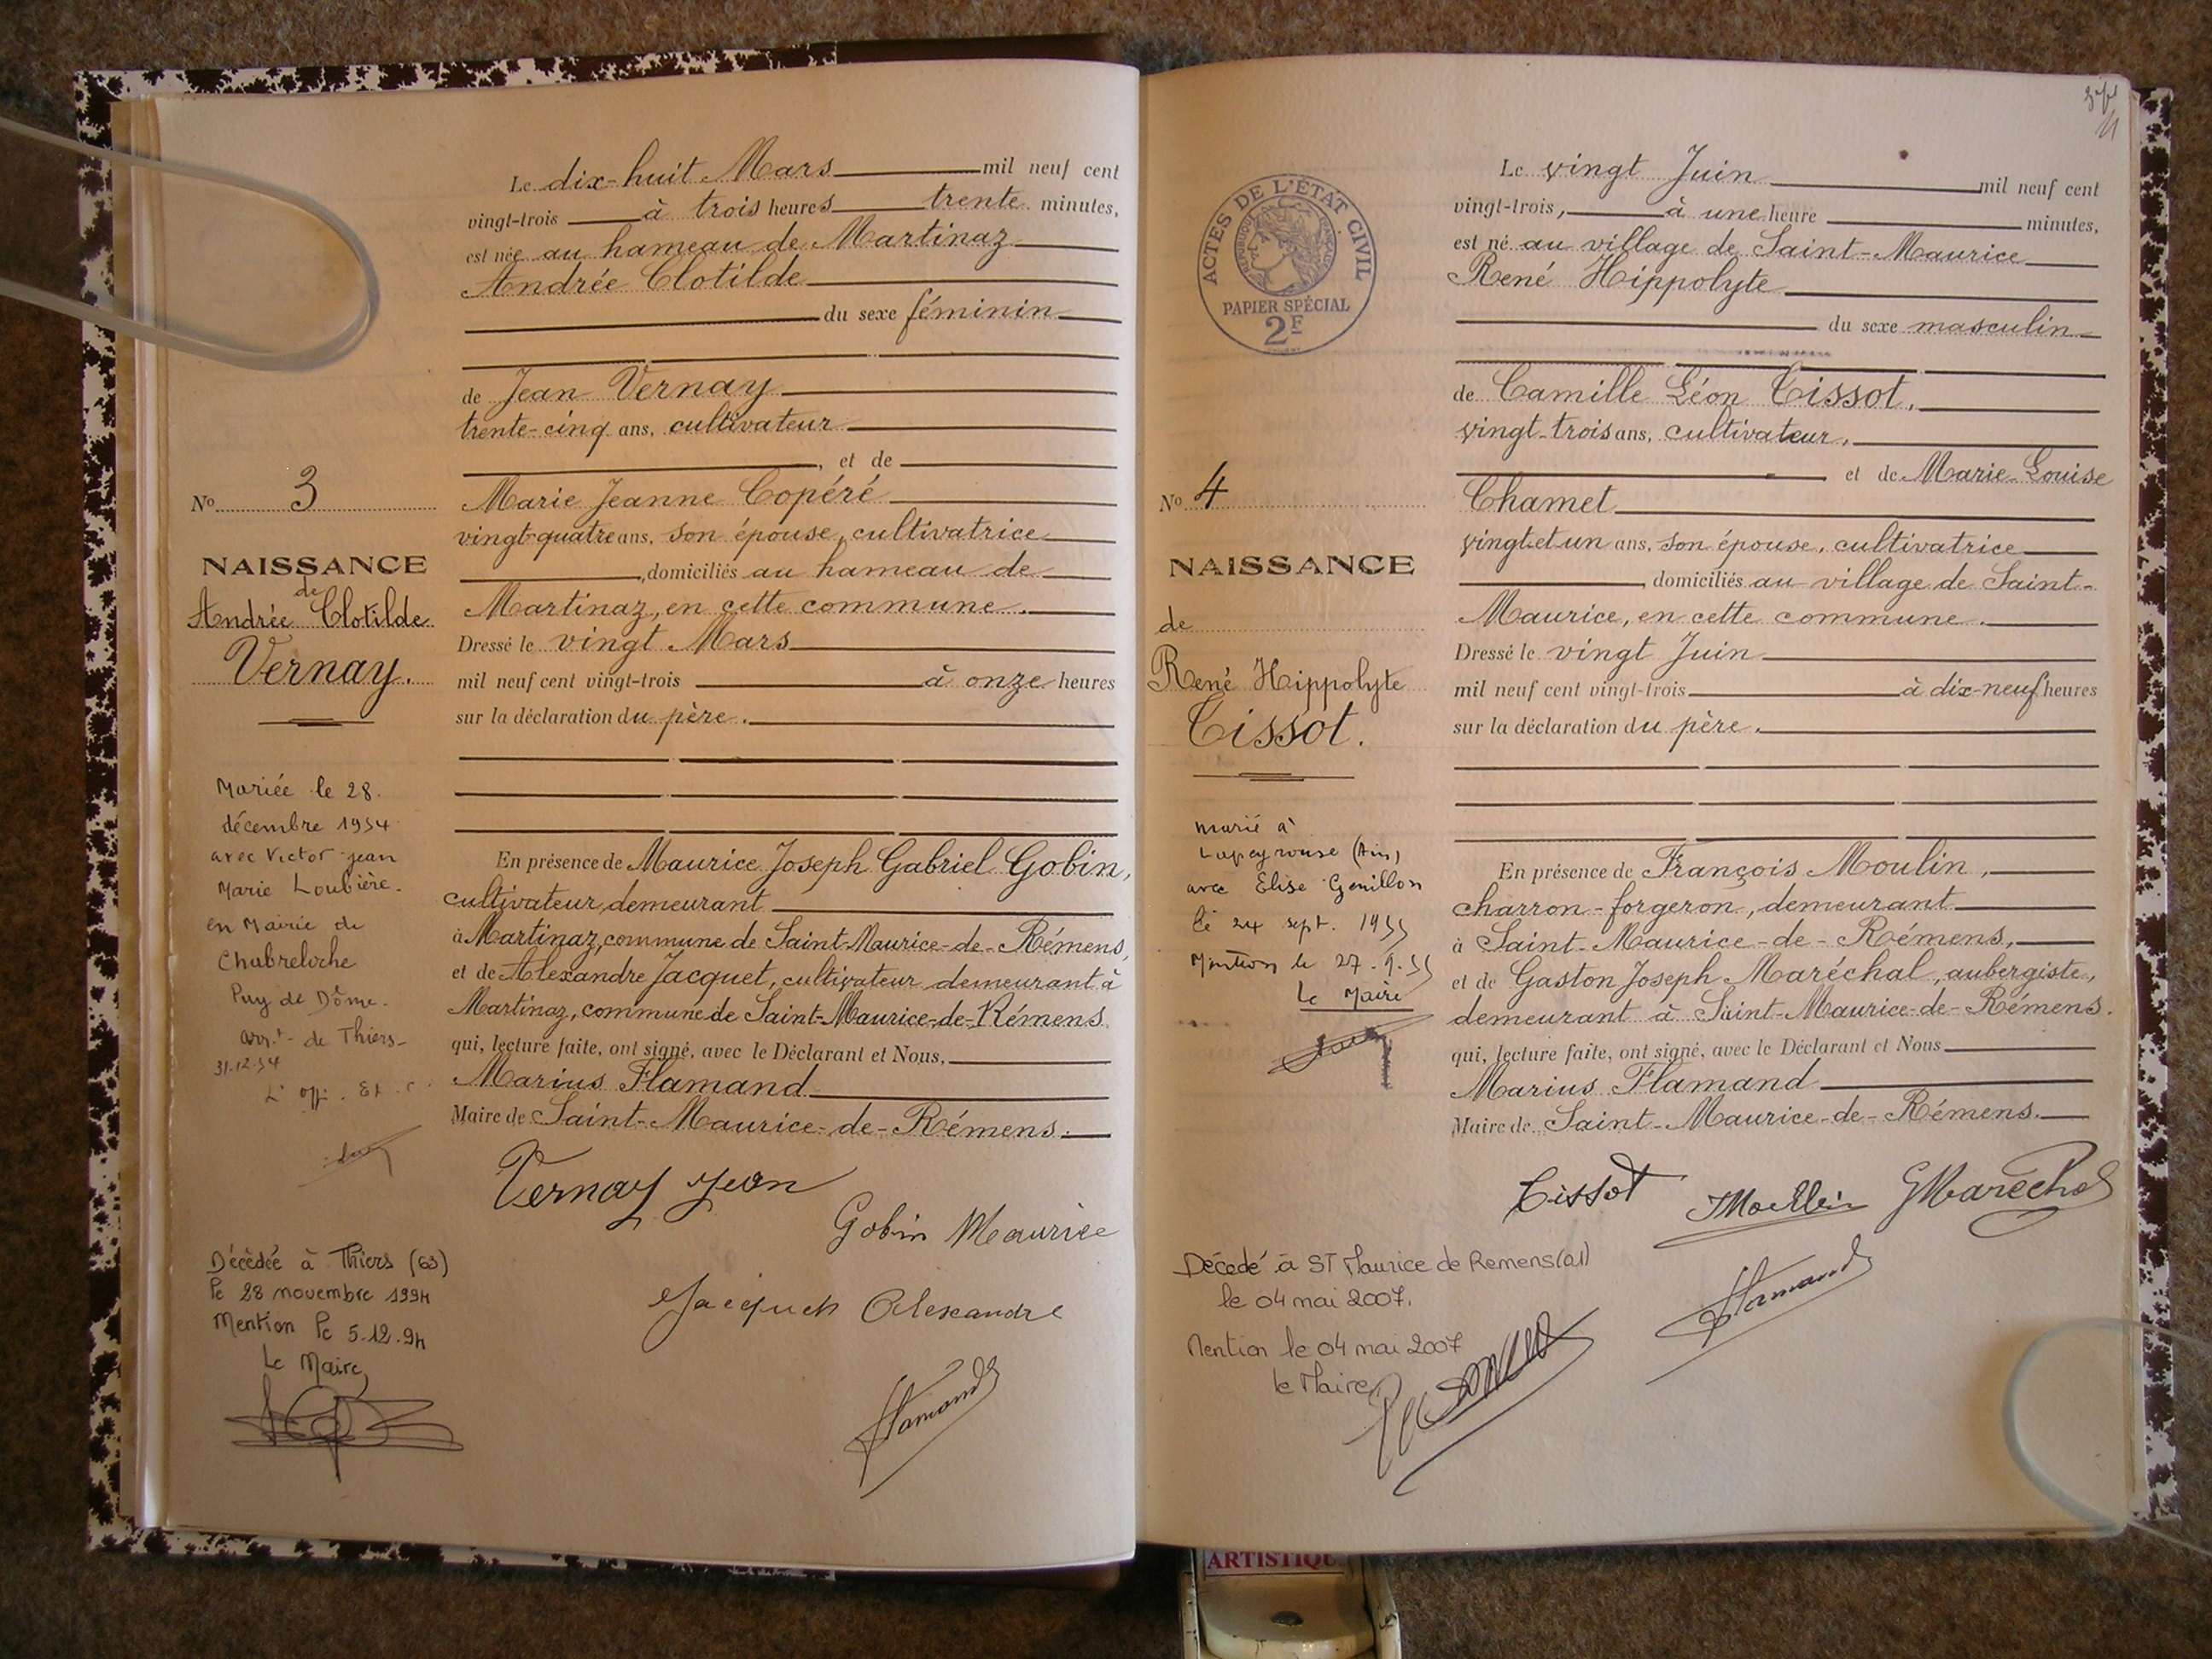 Le dix-huit Mars mil neuf cent
vingt-trois à trois heures trente minutes,
est née au hameau de Martinaz
Andrée Clotilde
du sexe féminin
de Jean Vernay
trente-cinq ans, cultivateur
, et de
Marie Jeanne Copéré
vingt-quatre ans, son épouse, cultivatrice
, domiciliés au hameau de
Martinaz, en cette commune.
Dressé le vingt Mars
mil neuf cent vingt-trois à onze heures
sur la déclaration du père.
En présence de Maurice Joseph Gabriel Gobin,
cultivateur, demeurant
à Martinaz, commune de Saint-Maurice-de-Rémens,
et de Alexandre Jacquet, cultivateur demeurant à
Martinaz, commune de Saint-Maurice-de-Rémens.
qui, lecture faite, ont signé, avec le Déclarant et Nous,
Marius Flamand
Maire de Saint-Maurice-de-Rémens.
Vernay Jean
Gobin Maurice
Jacquet Alexandre
Flamand
No 3
NAISSANCE
de
Andrée Clotilde
Vernay.
Mariée le 28
décembre 1954
avec Victor Jean
Marie Loubière.
en Mairie de
Chabreloche
Puy de Dôme.
arr.t de Thiers
31.12.54
L'off. Et. C.
Décédée à Thiers (63)
le 28 novembre 1994
Mention le 5.12.94
Le Maire
ACTES DE L'ÉTAT CIVIL
RÉPUBLIQUE FRANÇAISE
PAPIER SPÉCIAL
2F
Le vingt Juin mil neuf cent
vingt-trois, à une heure minutes,
est né au village de Saint-Maurice
René Hippolyte
du sexe masculin
de Camille Léon Tissot,
vingt-trois ans, cultivateur,
et de Marie-Louise
Chamet
vingt et un ans, son épouse, cultivatrice
, domiciliés au village de Saint-
Maurice, en cette commune.
Dressé le vingt Juin
mil neuf cent vingt-trois à dix-neuf heures
sur la déclaration du père.
En présence de François Moulin,
charron-forgeron, demeurant
à Saint-Maurice-de-Rémens,
et de Gaston Joseph Maréchal, aubergiste,
demeurant à Saint-Maurice-de-Rémens.
qui, lecture faite, ont signé, avec le Déclarant et Nous
Marius Flamand
Maire de Saint-Maurice-de-Rémens.
Tissot
FMoullin
GMaréchal
Flamand
No 4
NAISSANCE
de
René Hippolyte
Tissot.
marié à
Lapeyrouse (Ain)
avec Elise Genillon
le 24 sept. 1955
Mention le 27.9.55
Le Maire
Décédé à ST Maurice de Remens (01)
le 04 mai 2007.
Mention le 04 mai 2007
le Maire
ARTISTIQU